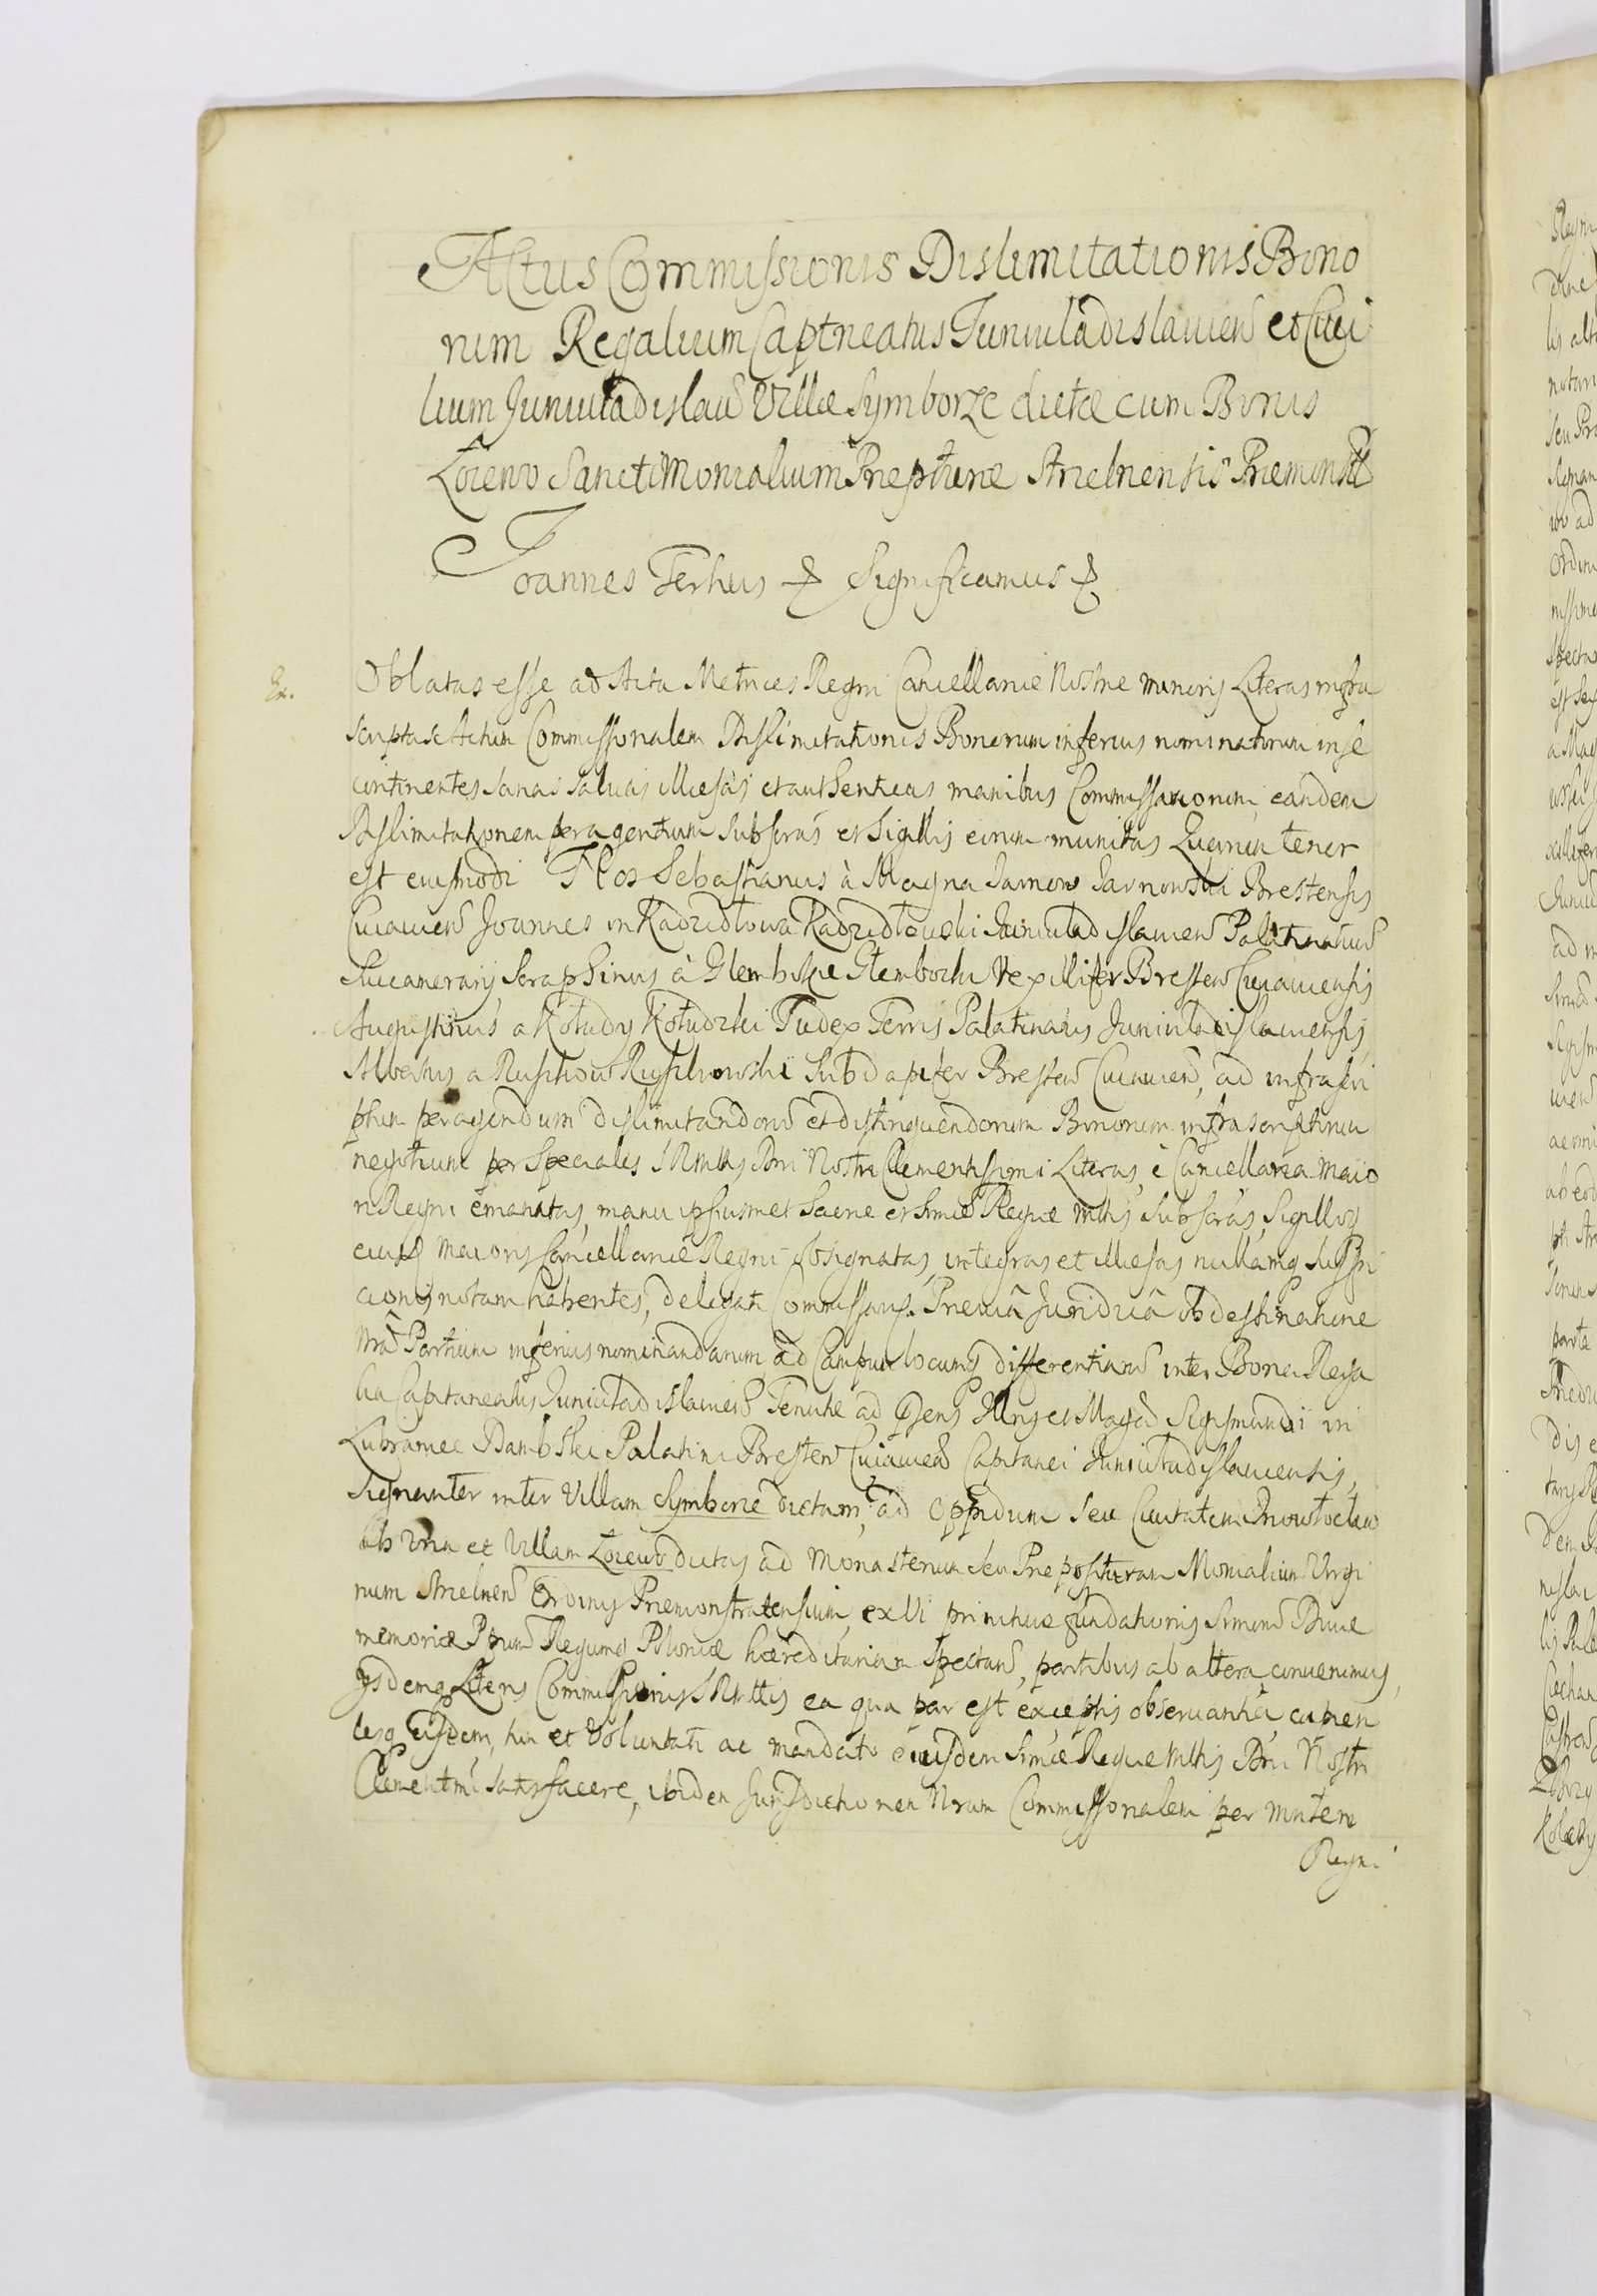 Actus Commissionis Dislimitationis Bono
rum Regalium Captneatus Juniuladislauien et Ciui
lium Juniuladislau Villæ Symborze dictæ cum Bonis
Łoiewo Sanctimonialium Præpturæ Strzelnensis Præmonst
Joannes Tertius & Significamus &
Ex.
Oblatas esse ad Acta Metrices Regni Cancellariæ Nostræ minoris Literas infra
scriptas Actum Commissionalem Dislimitationis Bonorum inferius nominatorum in se
continentes, sanas saluas illæsas et authenticas manibus Commissariorum, eandem
Dislimitationem peragentium subscras et sigillis eorum munitas Quarum tenor
est eiusmodi Nos Sebastianus à Magna Jarnow Jarnowski Brestensis
Cuiauien Joannes in Kadzidłowa Kadzidłowski Juniuladislauien Palatinatuum
Succamerarij Seraphinus à Glembokie Glembocki Vexillifer Bresten Cuiauiensis
Augustinus a Kołudy Kołudzki Judex Terris Palatinatus Juniuladislauiensis,
Albertus a Ruszkow Ruszkowski Subdapifer Bresten Cuiauien, ad infrascri
ptum peragendum dislimitandorum et distinguendorum Bonorum infrascriptorum
negotium per Speciales S R Mttis Dni Nostri Clementissimi Literas, è Cancellaria Maio
ri Regni emanatas, manu ipsiusmet Sacræ et Srmæ Regiæ Mttis Subscras, Sigilloq
eiusd Maioris Cancellariæ Regni obsignatas, integras et illæsas nullamq suspi
cionis notam habentes, delegati Commissarij. Præuiâ Juridicâ obdestinatione
nrâ Partium inferius nominandarum ad Campum locumq differentiarum inter Bona Rega
lia Capitaneatus Juniuladislauien Tenutæ ad præsens Mngci Magci Sigismundi in
Lubraniec Dambski Palatini Bresten Cuiauien Capitanei Juniuladislauiensis,
signanter inter Villam Symborze dictam, ad Oppidum seu Ciuitatem Inowłocław
ab vna et Villam Łoiewo dictas ad Monasterium seu Præposituram Monialium Virgi
num Strzelnen Ordinis Præmonstratensium, ex Vi primæuæ fundationis Srmorum Diuæ
memoriæ Ppum Regumq Poloniæ hæreditariam spectan, partibus ab altera conuenimus,
ijsdemq Literis Commissionis S R Mttis ea qua par est exceptis obseruantiâ, cupien
tesq eisdem, tum et Voluntati ac mandato eiusdem Srmæ Regiæ Mttis Dni Nostri
Clementmi satisfacere, ibidem Jurisdictionem Nram Commissionalem per Mntem
Regni